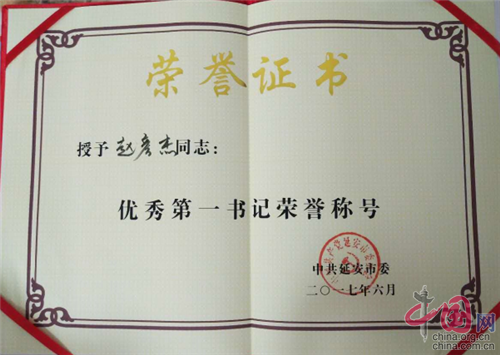 荣誉证书
授予赵彦杰同志：
优秀第一书记荣誉称号
中共延安市委
二〇一七年六月
中国网
china.org.cn
china.com.cn